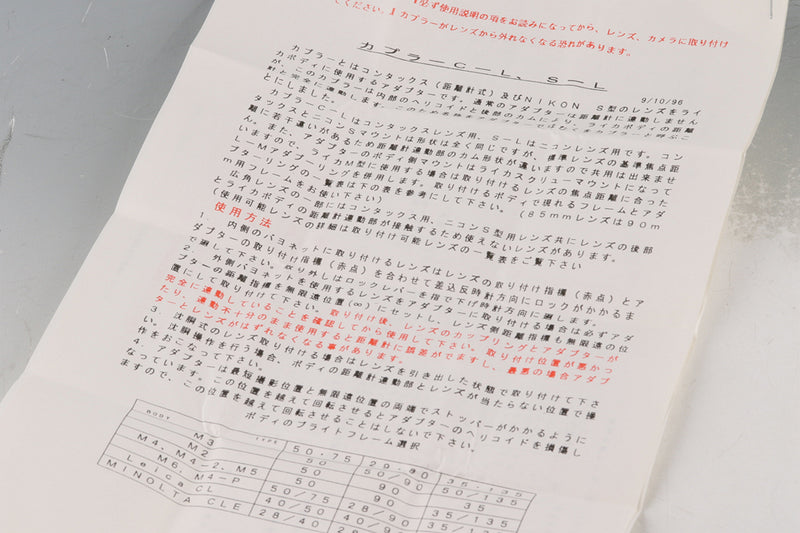 必ず使用説明の項をお読みになってから、レンズ、カメラに取り付け
てください。1カプラーがレンズから外れなくなる恐れがあります。
カプラーC-L、S-L
9/10/96
カプラーとはコンタックス(距離計式)及びNIKON S型のレンズをライ
カボディに使用するアダプターです。通常のアダプターは距離計に連動しません
が、このカプラーは内部のヘリコイドと後部のカムにより、ライカボディの距離
計と完全に連動します。
とにしました。
カプラーC-Lはコンタックスレンズ用、S-Lはニコンレンズ用です。コン
タックスとニコンSマウントは形状は全く同じですが、標準レンズの基準焦点距
に若干違いがあるため距離計連動部のカム形状が違いますので共用は出来ませ
ん。また、アダプターのボディ側マウントはライカスクリューマウントになって
いますので、ライカM型に使用する場合は取り付けるレンズの焦点距離に合った
L-Mアダプターリングを併用します。取り付けるボディで現れるフレームとアダ
プターリングの一覧表は下の表を参考にして下さい。(85mmレンズは90m
m用フレームをお使い下さい)
広角レンズの一部にはコンタックス用、ニコンS型用レンズ共にレンズの後部
とライカボディの距離計連動部が接触するため使えないレンズがあります。
(使用可能レンズの詳細は取り付け可能レンズの一覧表をご覧下さい
使用方法
1. 内側のバヨネットに取り付けるレンズはレンズの取り付け指標(赤点)とア
ダプターの取り付け指標(赤点)を合わせて差込反時計方向にロックがかかるま
で廻して下さい。取り外しはロックレバーを指で下げ時計方向に廻します。
2. 外側バヨネットを使用するレンズをアダプターに取り付ける場合は必ずアダ
プターの距離指標を無限遠位置(∞)にセットし、レンズ側距離指標も無限遠の位
置にして取り付けて下さい。取り付け後、レンズのカップリングとアダプターが
完全に連動していることを確認してから使用して下さい。取り付け位置が悪かっ
たり、連動不十分のまま使用すると距離計に誤差がでますし、最悪の場合アダプ
ターとレンズがはずれなくなる事があります。
3. 沈胴式のレンズ取り付ける場合はレンズを引き出した状態で取り付けて下さ
い。沈胴操作を行う場合、ボディの距離計連動部とレンズが当たらない位置で操
作をおこなって下さい。
4. アダプターは最短撮影位置と無限遠位置の両端でストッパーがかかるように
なっています。この位置を越えて回転させるとアダプターのヘリコイドを損傷し
ますので、この位置を越えて回転させることはしないで下さい。
ボディのブライトフレーム選択
BODY TYPE 50・75 29・90 35・135
M3 50 50/90 50/135
M2 50 90 35
M4、M4-2、M5 50 90 35/135
M6、M4-P 50/75 28/90 35/135
Leica CL 40/50
MINOLTA CLE 28/40 28/90